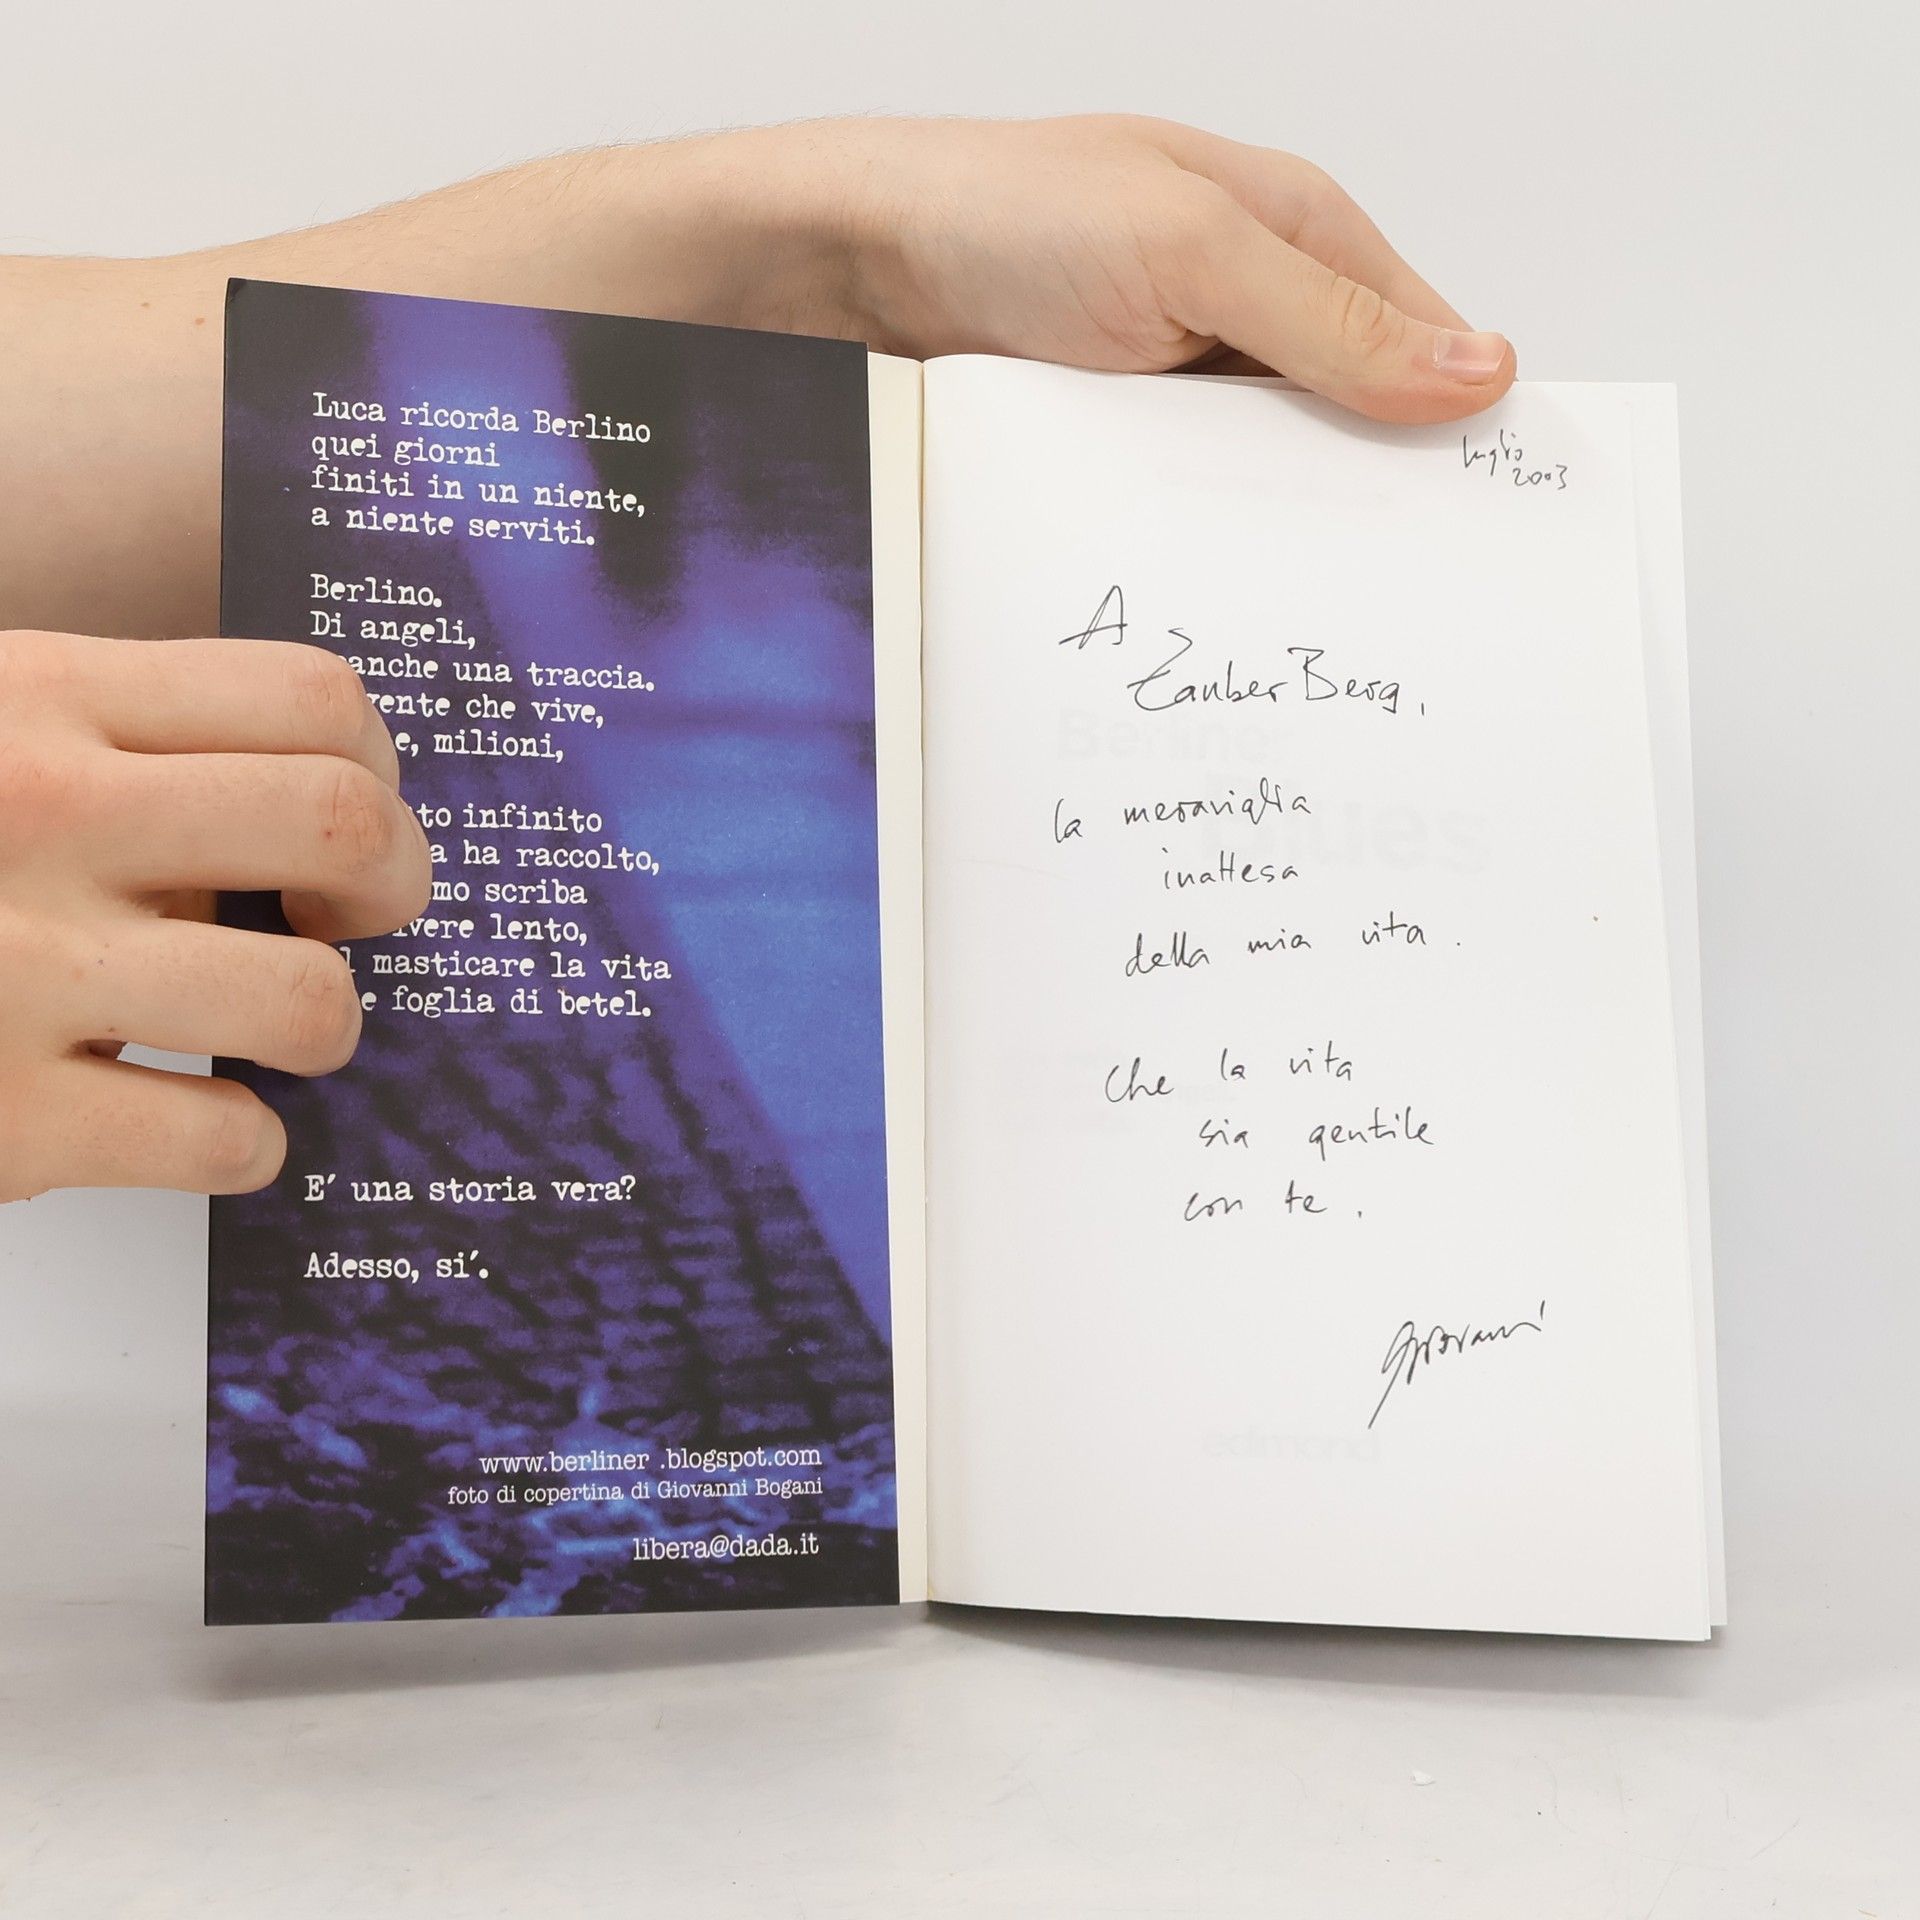 Luca ricorda Berlino
quei giorni
finiti in un niente,
a niente serviti.
Berlino.
Di angeli,
anche una traccia.
che vive,
milioni,
infinito
ha raccolto,
scriba
lento,
masticare la vita
foglia di betel.
E' una storia vera?
Adesso, si'.
www.berliner .blogspot.com
foto di copertina di Giovanni Bogani
libera@dada.it
luglio
2003
A
Zauber Berg,
la meraviglia
inattesa
della mia vita.
Che la vita
sia gentile
con te.
Giovanni